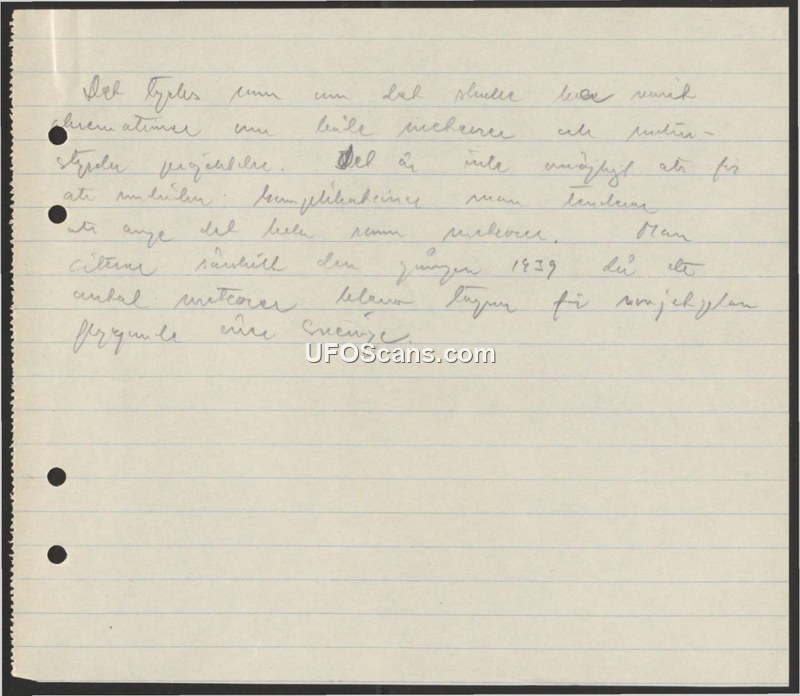 Det tycks som om det skulle ha varit
observationer om både meteorer och
styrda projektiler. Det är inte omöjligt att för
att undvika komplikationer man
att ange det hela som meteorer. Man
citerar särskilt den gången 1939 då ett
antal meteorer togs för
flygande över Sverige.
UFOScans.com